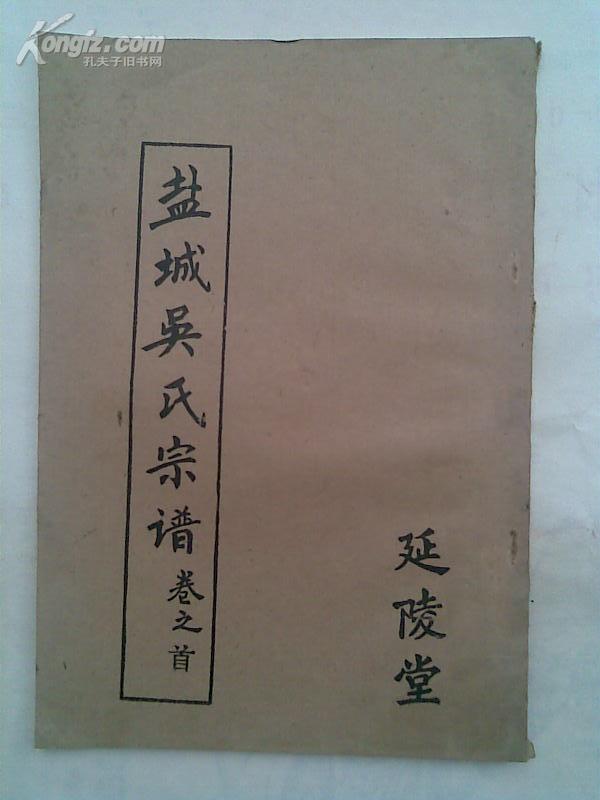 Kongfz.com
孔夫子旧书网
盐城吳氏宗谱卷之首
延陵堂